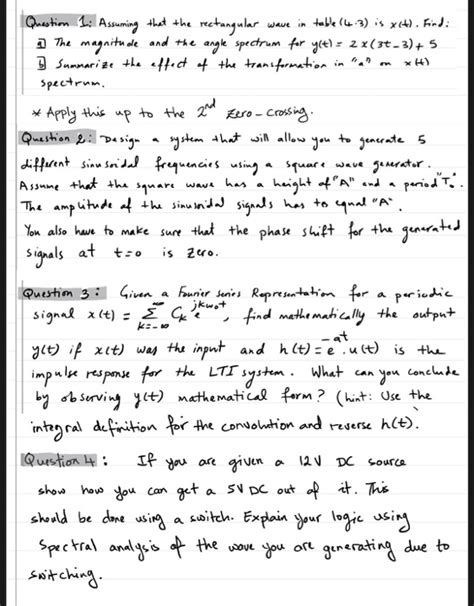 Question 1: Assuming that the rectangular wave in table (4.3) is x(t). Find:
a) The magnitude and the angle spectrum for y(t) = 2x(3t-3)+5
b) Summarize the effect of the transformation in "a" on x(t)
spectrum.
* Apply this up to the 2nd zero-crossing.
Question 2: Design a system that will allow you to generate 5
different sinusoidal frequencies using a square wave generator.
Assume that the square wave has a height of "A" and a period "T".
The amplitude of the sinusoidal signals has to equal "A".
You also have to make sure that the phase shift for the generated
signals at t=0 is zero.
Question 3: Given a Fourier series Representation for a periodic
signal x(t) = ∞ Σ k=-∞ Ck e^jkw0t, find mathematically the output
y(t) if x(t) was the input and h(t) = e^-at . u(t) is the
impulse response for the LTI system. What can you conclude
by observing y(t) mathematical form? (hint: Use the
integral definition for the convolution and reverse h(t).
Question 4: If you are given a 12V DC source
show how you can get a 5V DC out of it. This
should be done using a switch. Explain your logic using
Spectral analysis of the wave you are generating due to
switching.